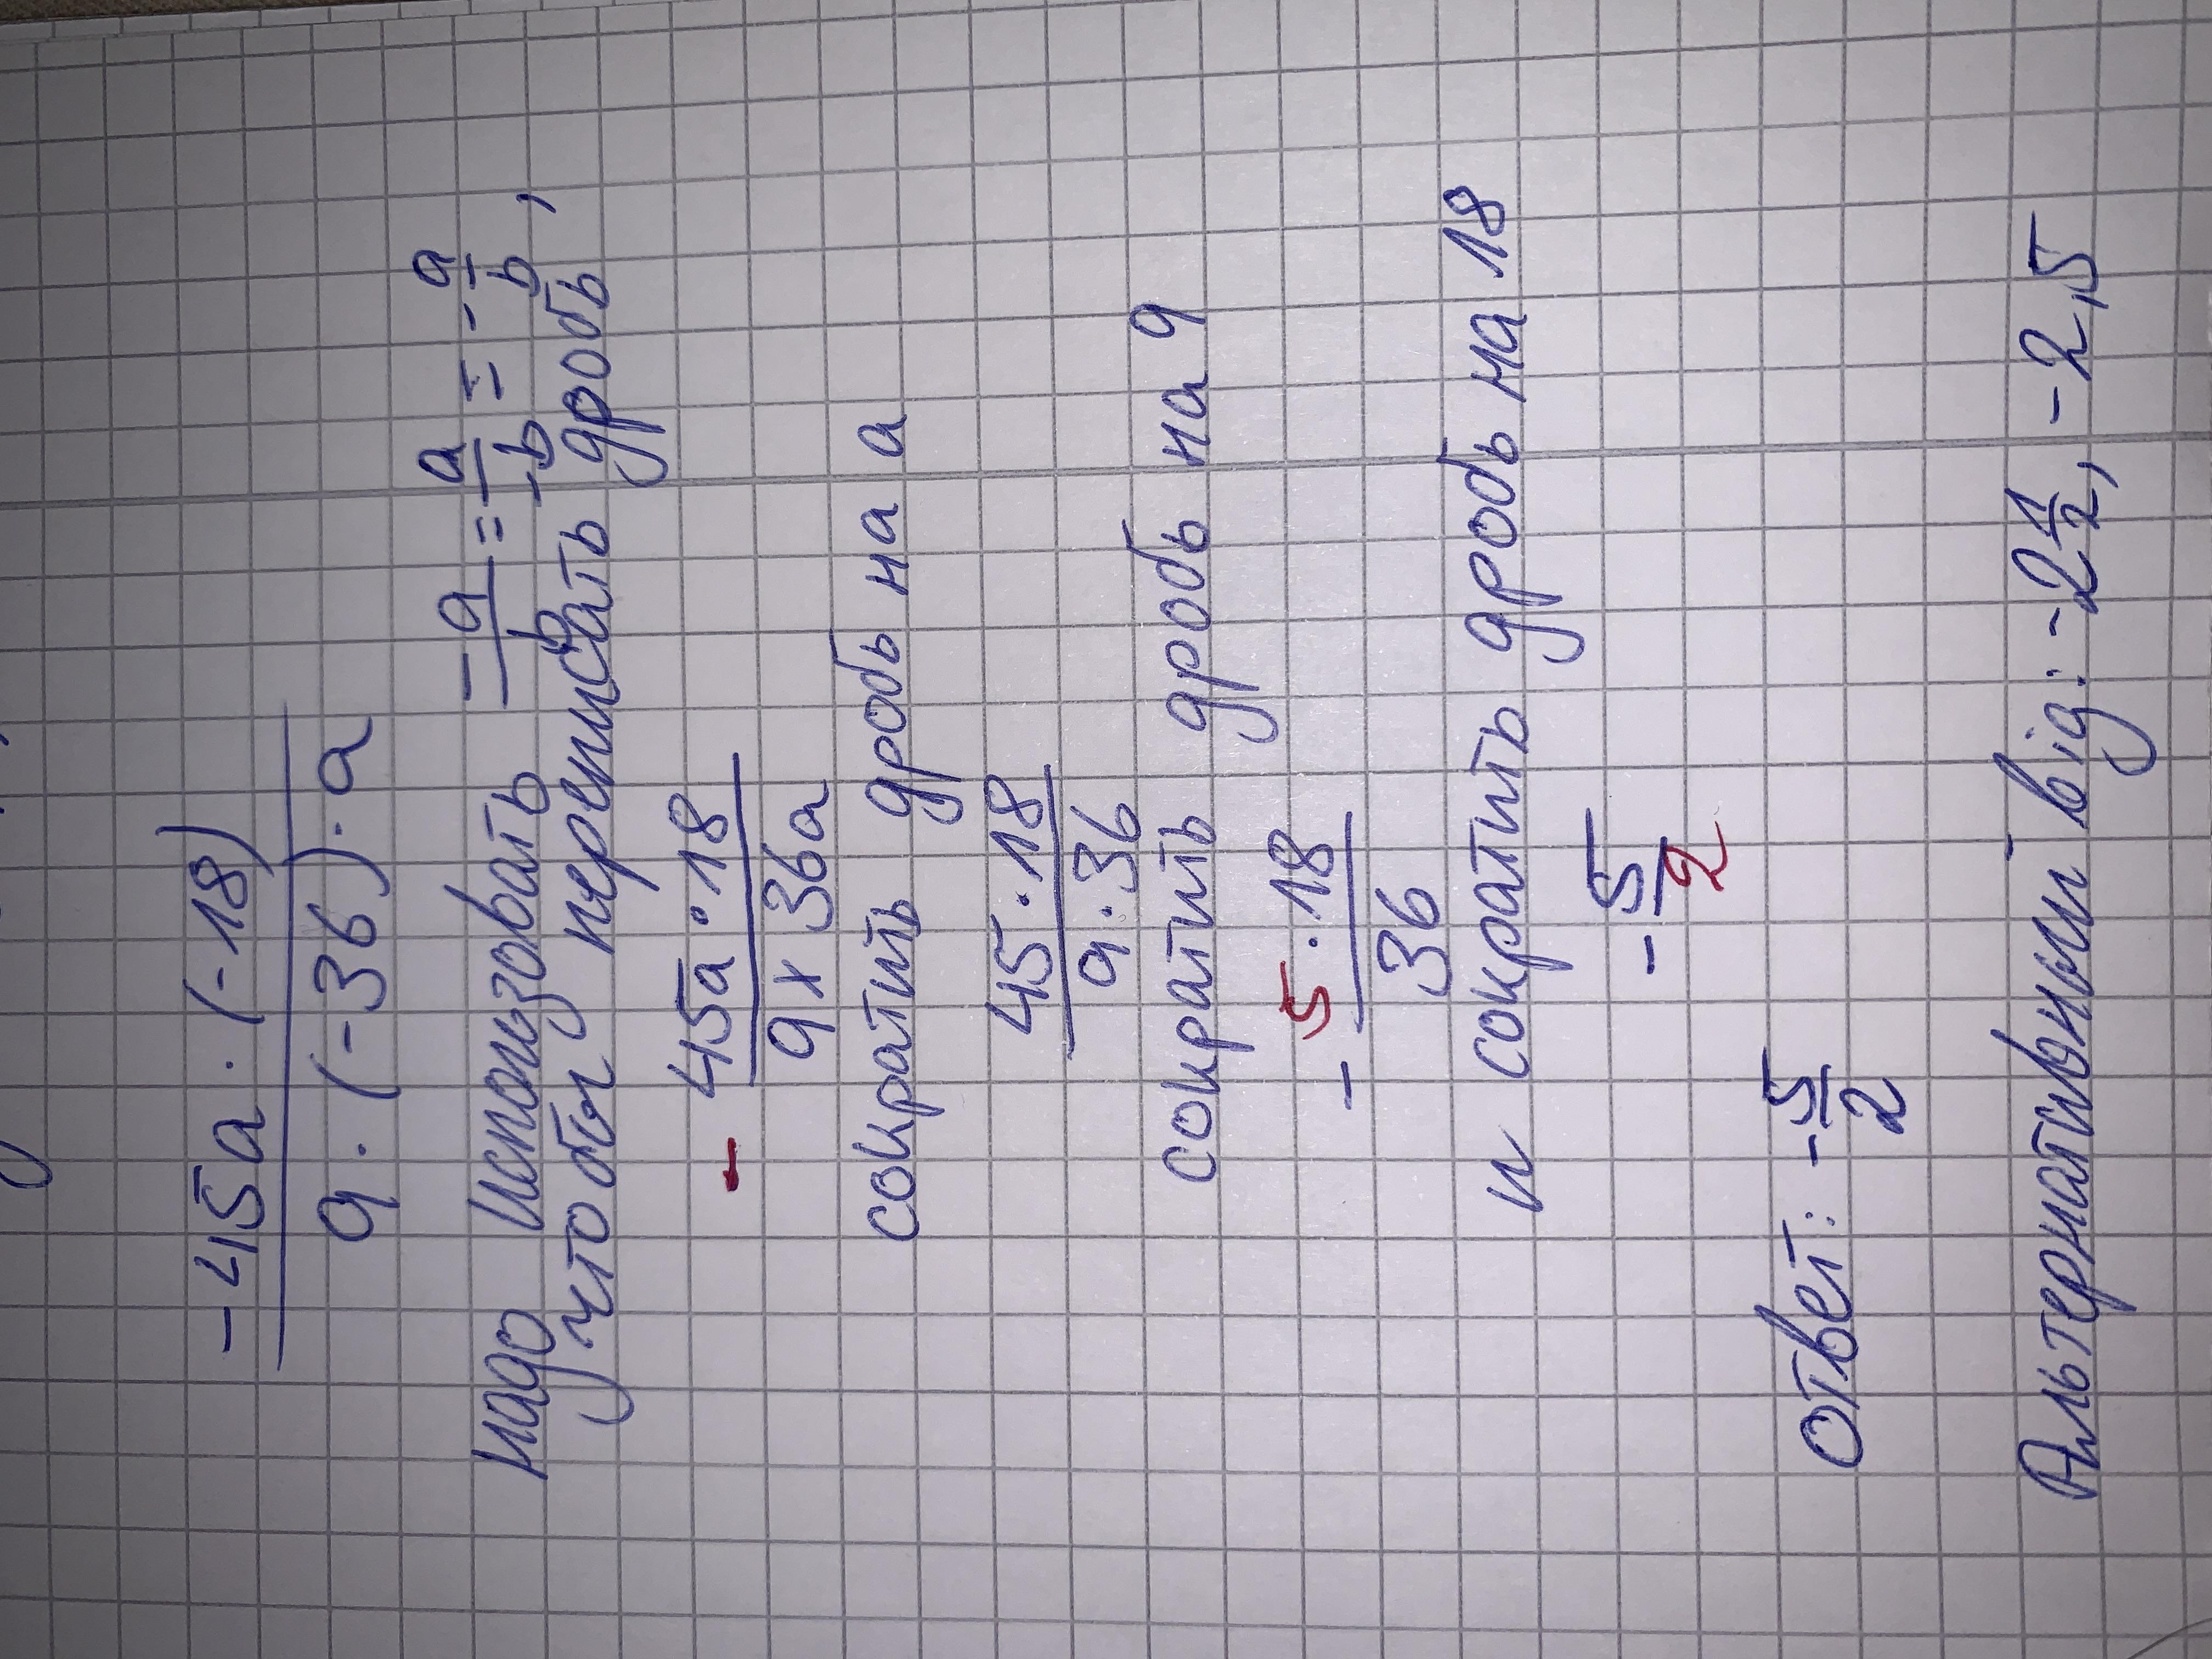 -45a · (-18)
9 · (-36) · a
надо использовать -a/b = a/-b = - a/b ,
что бы переписать дробь
- 45a · 18
9 x 36a
сократить дробь на a
45 · 18
9 · 36
сократить дробь на 9
- 5 · 18
36
и сократить дробь на 18
- 5/2
ответ: - 5/2
Альтернативный вig: -2 1/2, -2,5